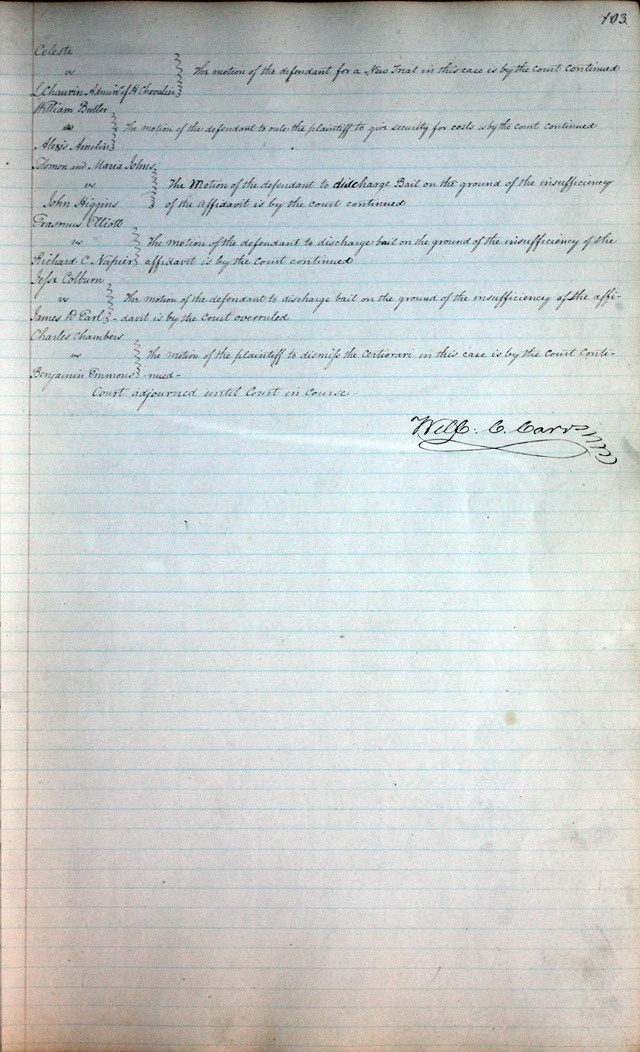 103
Celeste
vs } The motion of the defendant for a New Trial in this case is by the Court Continued
L Chauvin Admr of H Chevalier
William Butler
vs } The motion of the defendant to rule the plaintiff to give security for costs is by the court continued
Alexis Amelin
Solomon and Maria Johns
vs } The Motion of the defendant to discharge Bail on the ground of the insufficiency
John Higgins of the Affidavit is by the court continued
Erasmus Elliott
vs } The motion of the defendant to discharge bail on the ground of the insufficiency of the
Richard C Napier affidavit is by the Court continued
Jesse Colburn
vs } The motion of the defendant to discharge bail on the ground of the insufficiency of the affi-
James D Earl davit is by the Court overruled
Charles Chambers
vs } The motion of the plaintiff to dismiss the Certiorare in this case is by the Court Conti-
Benjamin Emmons -nued-
Court adjourned until Court in Course
Will. C. Carr